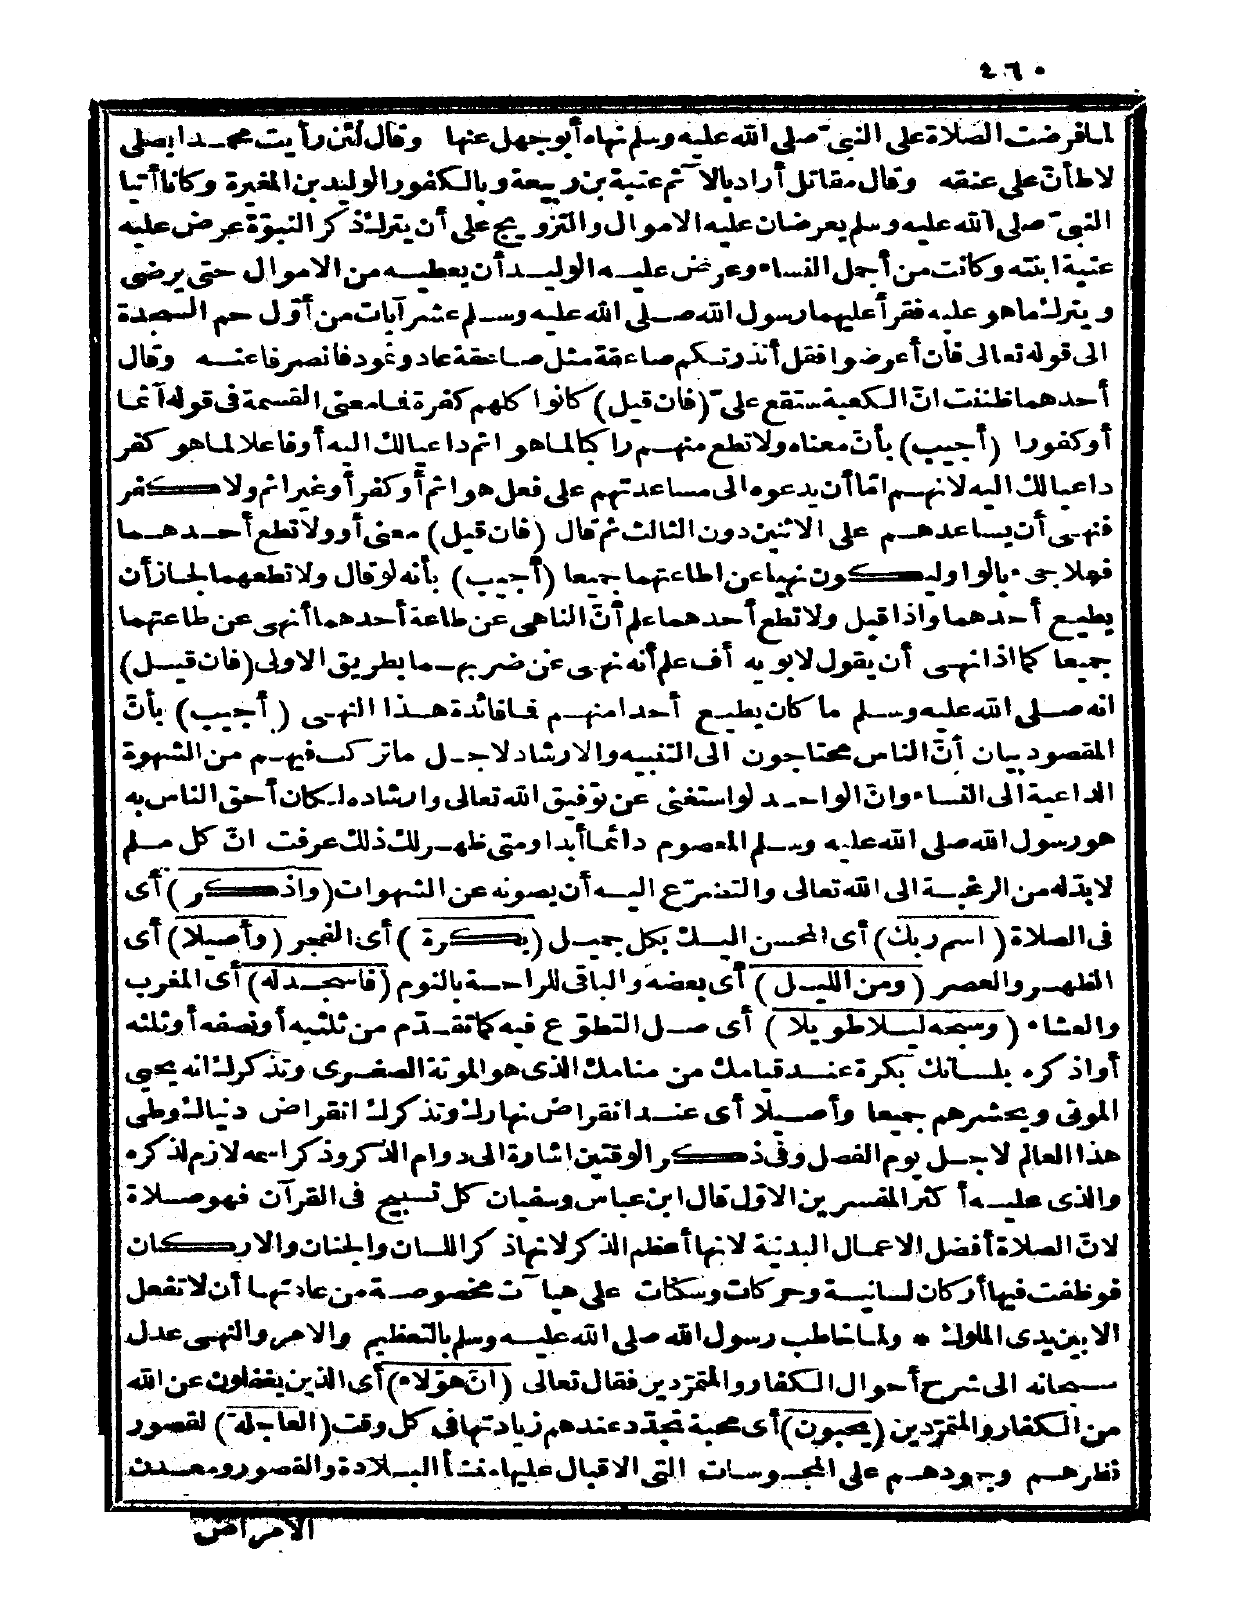 ٤٦٠
لما فرضت الصلاة على النبيّ صلى الله عليه وسلم نهاه أبو جهل عنها وقال لئن رأيت محمدا يصلى
لاطأنّ على عنقه وقال مقاتل أراد بالآثم عتبة بن ربيعة وبالكفور الوليد بن المغيرة وكانا أتيا
النبيّ صلى الله عليه وسلم يعرضان عليه الاموال والتزويج على أن يترك ذكر النبوّة عرض عليه
عتبة ابنته وكانت من أجمل النساء وعرض عليه الوليد أن يعطيه من الاموال حتى يرضى
ويترك ما هو عليه فقرأ عليهما رسول الله صلى الله عليه وسلم عشر آيات من أوّل حم السجدة
الى قوله تعالى فان أعرضوا فقل أنذرتكم صاعقة مثل صاعقة عاد وثمود فانصرفا عنه وقال
أحدهما ظننت انّ الكعبة ستقع علىّ (فان قيل) كانوا كلهم كفرة فما معنى القسمة فى قوله آثما
أو كفورا (أجيب) بأنّ معناه ولا تطع منهم راكبا لما هو اثم داعيا لك اليه أو فاعلا لما هو كفر
داعيا لك اليه لانهم امّا أن يدعوه الى مساعدتهم على فعل هو اثم أو كفر أو غير اثم ولا كفر
فنهى أن يساعدهم على الاثنين دون الثالث ثم قال (فان قيل) معنى أو ولا تطع أحدهما
فهلا جىء بالواو ليكون نهيا عن اطاعتهما جميعا (أجيب) بأنه لو قال ولا تطعهما لجاز أن
يطيع أحدهما واذا قيل ولا تطع أحدهما علم أنّ الناهى عن طاعة أحدهما أنهى عن طاعتهما
جميعا كما اذا نهى أن يقول لابويه أف علم أنه نهى عن ضربهما بطريق الاولى (فان قيل)
انه صلى الله عليه وسلم ما كان يطيع أحدا منهم فما فائدة هذا النهى (أجيب) بأنّ
المقصود بيان أنّ الناس محتاجون الى التنبيه والارشاد لاجل ما تركب فيهم من الشهوة
الداعية الى النساء وانّ الواحد لو استغنى عن توفيق الله تعالى وارشاده لكان أحق الناس به
هو رسول الله صلى الله عليه وسلم المعصوم دائما أبدا ومتى ظهر لك ذلك عرفت انّ كل مسلم
لا بدّ له من الرغبة الى الله تعالى والتضرّع اليه أن يصونه عن الشهوات (واذكر) أى
فى الصلاة (اسم ربك) أى المحسن اليك بكل جميل (بكرة) أى الفجر (وأصيلا) أى
الظهر والعصر (ومن الليل) أى بعضه والباقى للراحة بالنوم (فاسجد له) أى المغرب
والعشاء (وسبحه ليلا طويلا) أى صل التطوّع فيه كما تقدّم من ثلثيه أو نصفه أو ثلثه
أو اذكره بلسانك بكرة عند قيامك من منامك الذى هو الموتة الصغرى وتذكرك انه يحيى
الموتى ويحشرهم جميعا وأصيلا أى عند انقراض نهارك وتذكرك انقراض دنياك وطى
هذا العالم لاجل يوم الفصل وفى ذكر الوقتين اشارة الى دوام الذكر وذكر اسمه لازم لذكره
والذى عليه أكثر المفسرين الاوّل قال ابن عباس وسفيان كل تسبيح فى القرآن فهو صلاة
لانّ الصلاة أفضل الاعمال البدنية لانها أعظم الذكر لانها ذكر اللسان والجنان والاركان
فوظفت فيها أركان لسانية وحركات وسكتات على هيآت مخصوصة من عادتها أن لا تفعل
الا بين يدى الملوك * ولما خاطب رسول الله صلى الله عليه وسلم بالتعظيم والامر والنهى عدل
سبحانه الى شرح أحوال الكفار والمتمرّدين فقال تعالى (انّ هؤلاء) أى الذين يغفلون عن الله
من الكفار والمتمرّدين (يحبون) أى محبة تتجدّد عندهم زيادتها فى كل وقت (العاجلة) لقصور
نظرهم وجودهم على المحسوسات التى الاقبال عليها منشأ البلادة والقصور ومعدن
الامراض